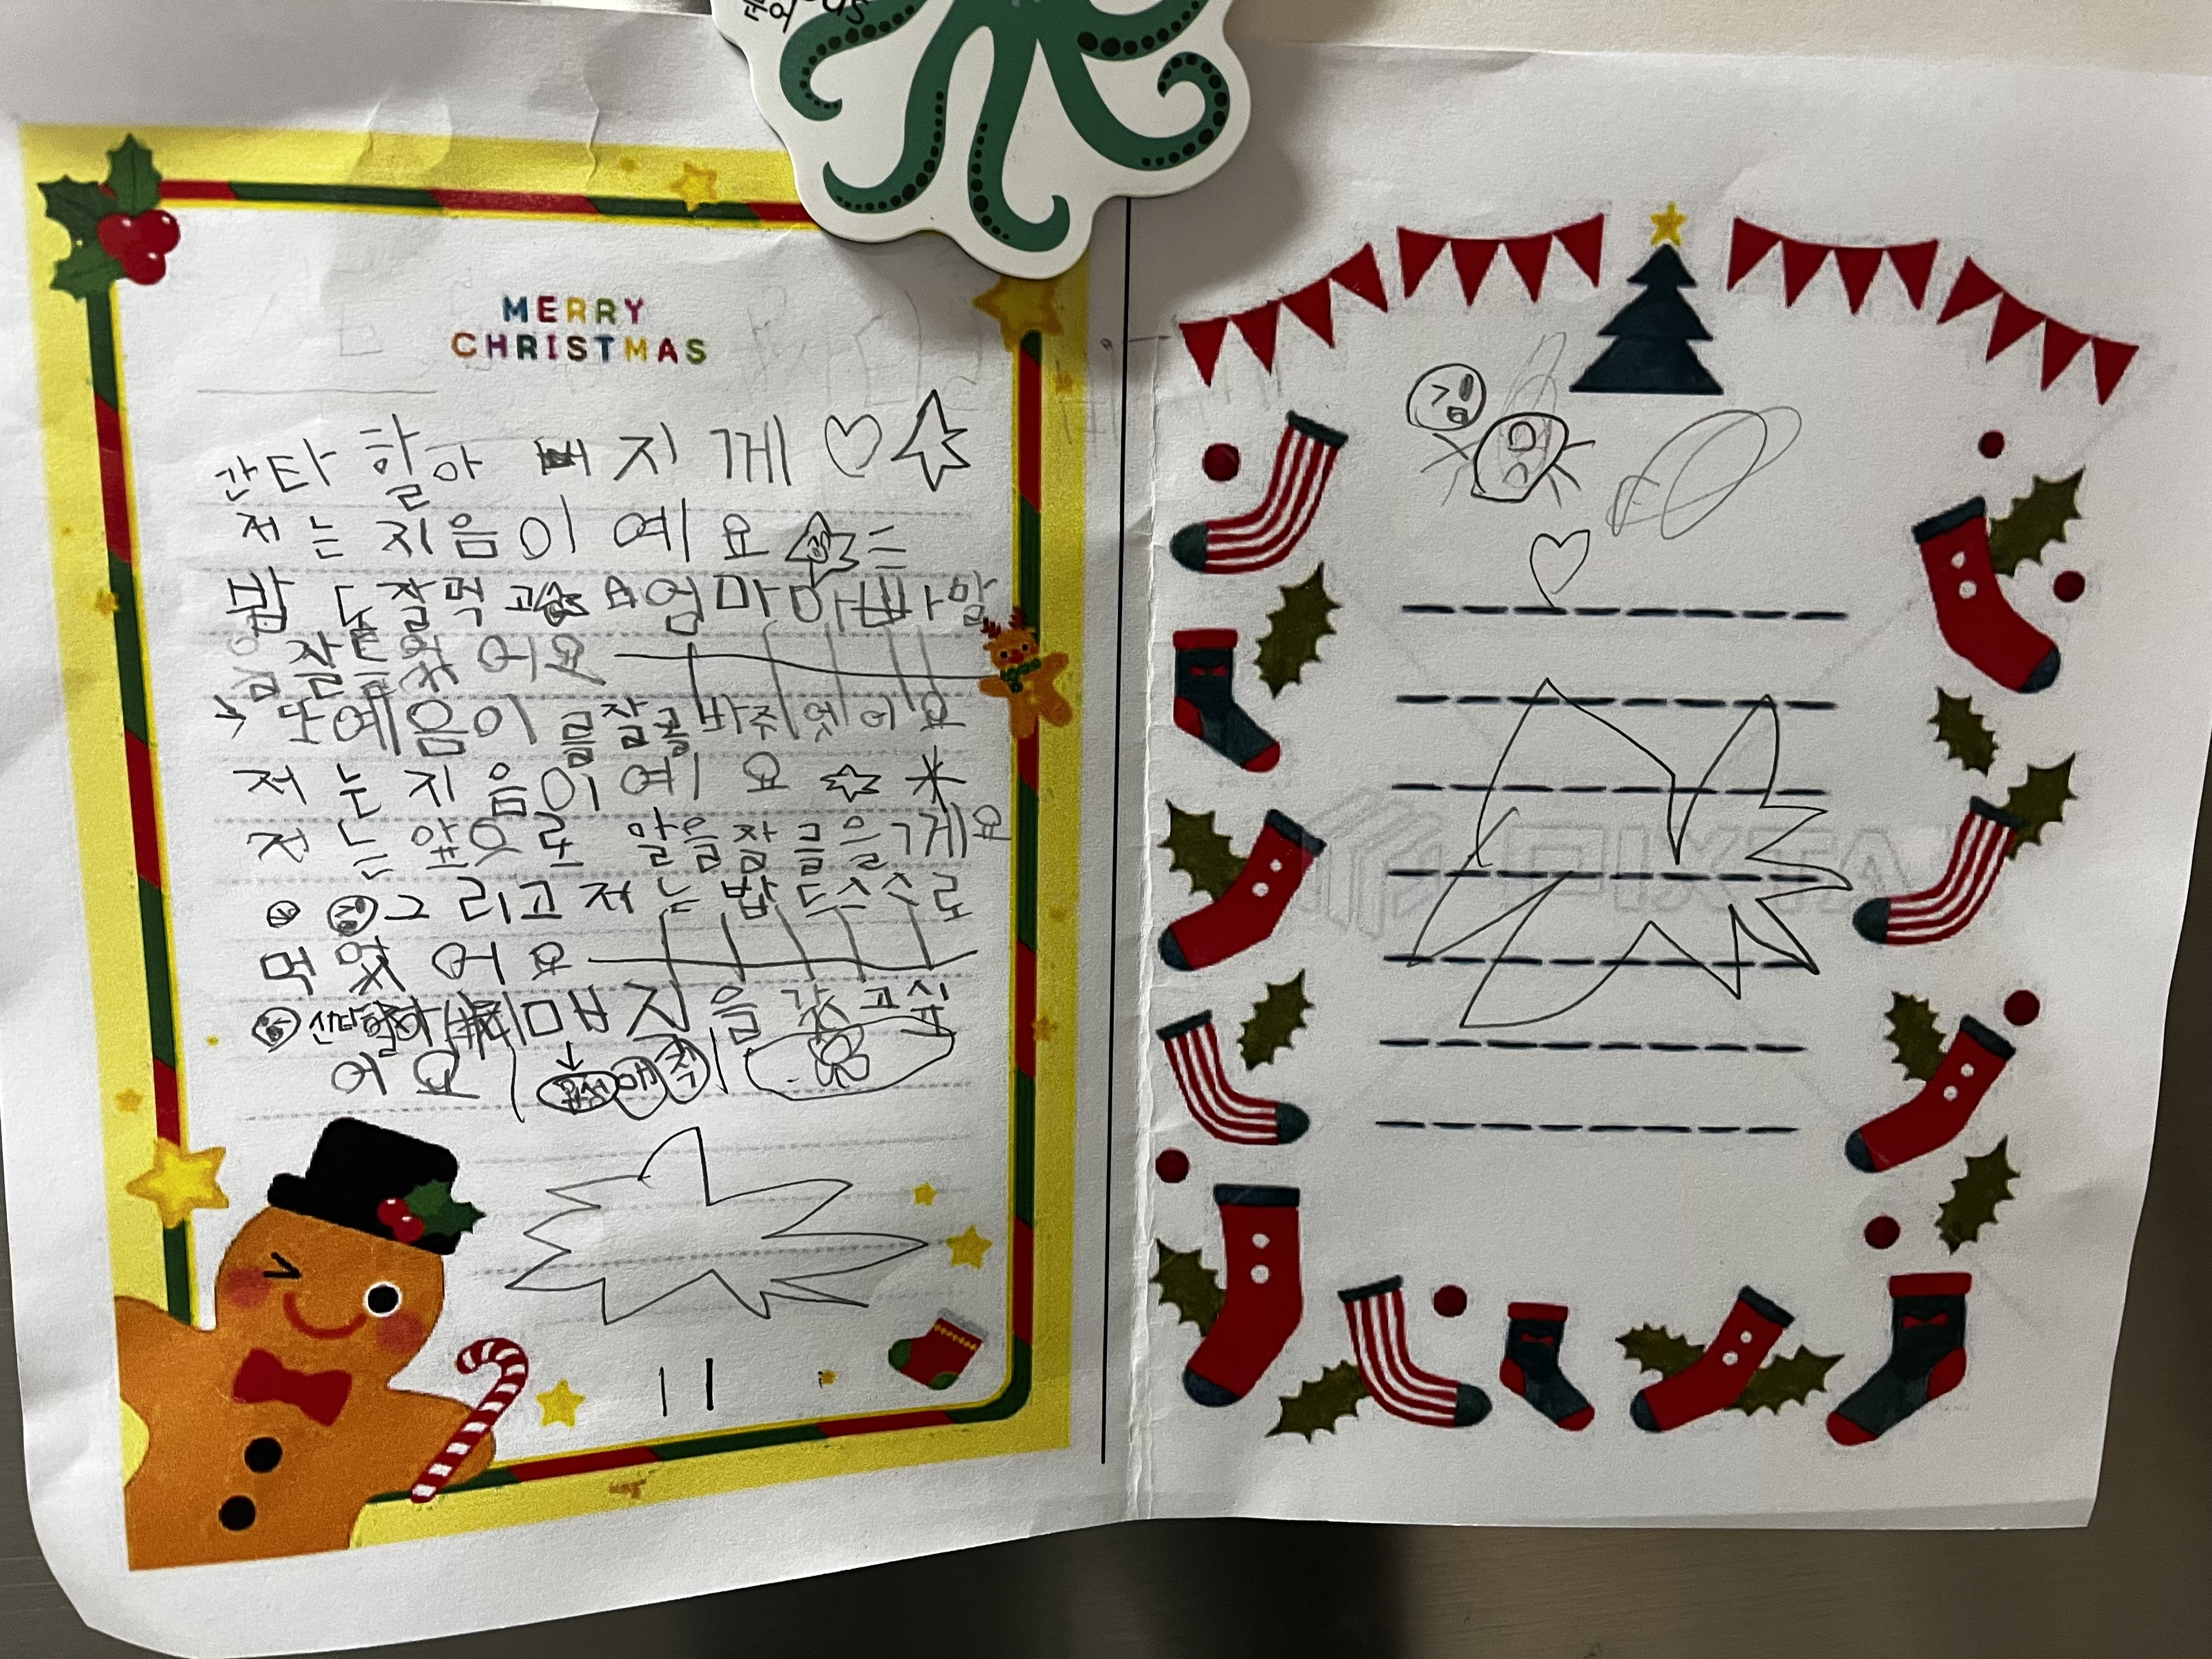 MERRY
CHRISTMAS
산타 할아 지 께
저 는 지음이 예 요
밥 도 잘 먹 고 엄 마 아 빠 말
잘 들 었 어 요
또 예 음 이 를 잘 돌 바 주 었 어 요
저 는 지 음 이 예 요
저 는 앞 으 로 말 을 잘 들 을 게 요
그 리 고 저 는 밥 도 스 스 로
먹 었 어 요
산타 할아 매 지 을 갖 고 싶
어 요
PIXTA